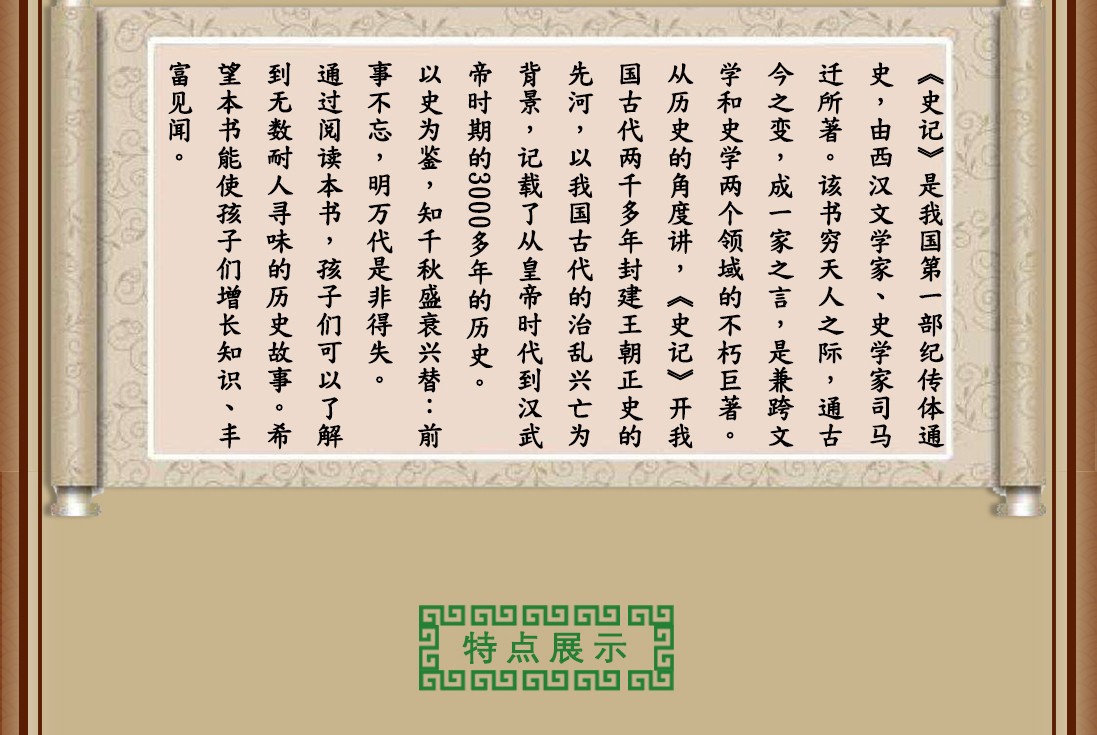 《史记》是我国第一部纪传体通
史，由西汉文学家、史学家司马
迁所著。该书穷天人之际，通古
今之变，成一家之言，是兼跨文
学和史学两个领域的不朽巨著。
从历史的角度讲，《史记》开我
国古代两千多年封建王朝正史的
先河，以我国古代的治乱兴亡为
背景，记载了从皇帝时代到汉武
帝时期的3000多年的历史。
以史为鉴，知千秋盛衰兴替：前
事不忘，明万代是非得失。
通过阅读本书，孩子们可以了解
到无数耐人寻味的历史故事。希
望本书能使孩子们增长知识、丰
富见闻。
特点展示